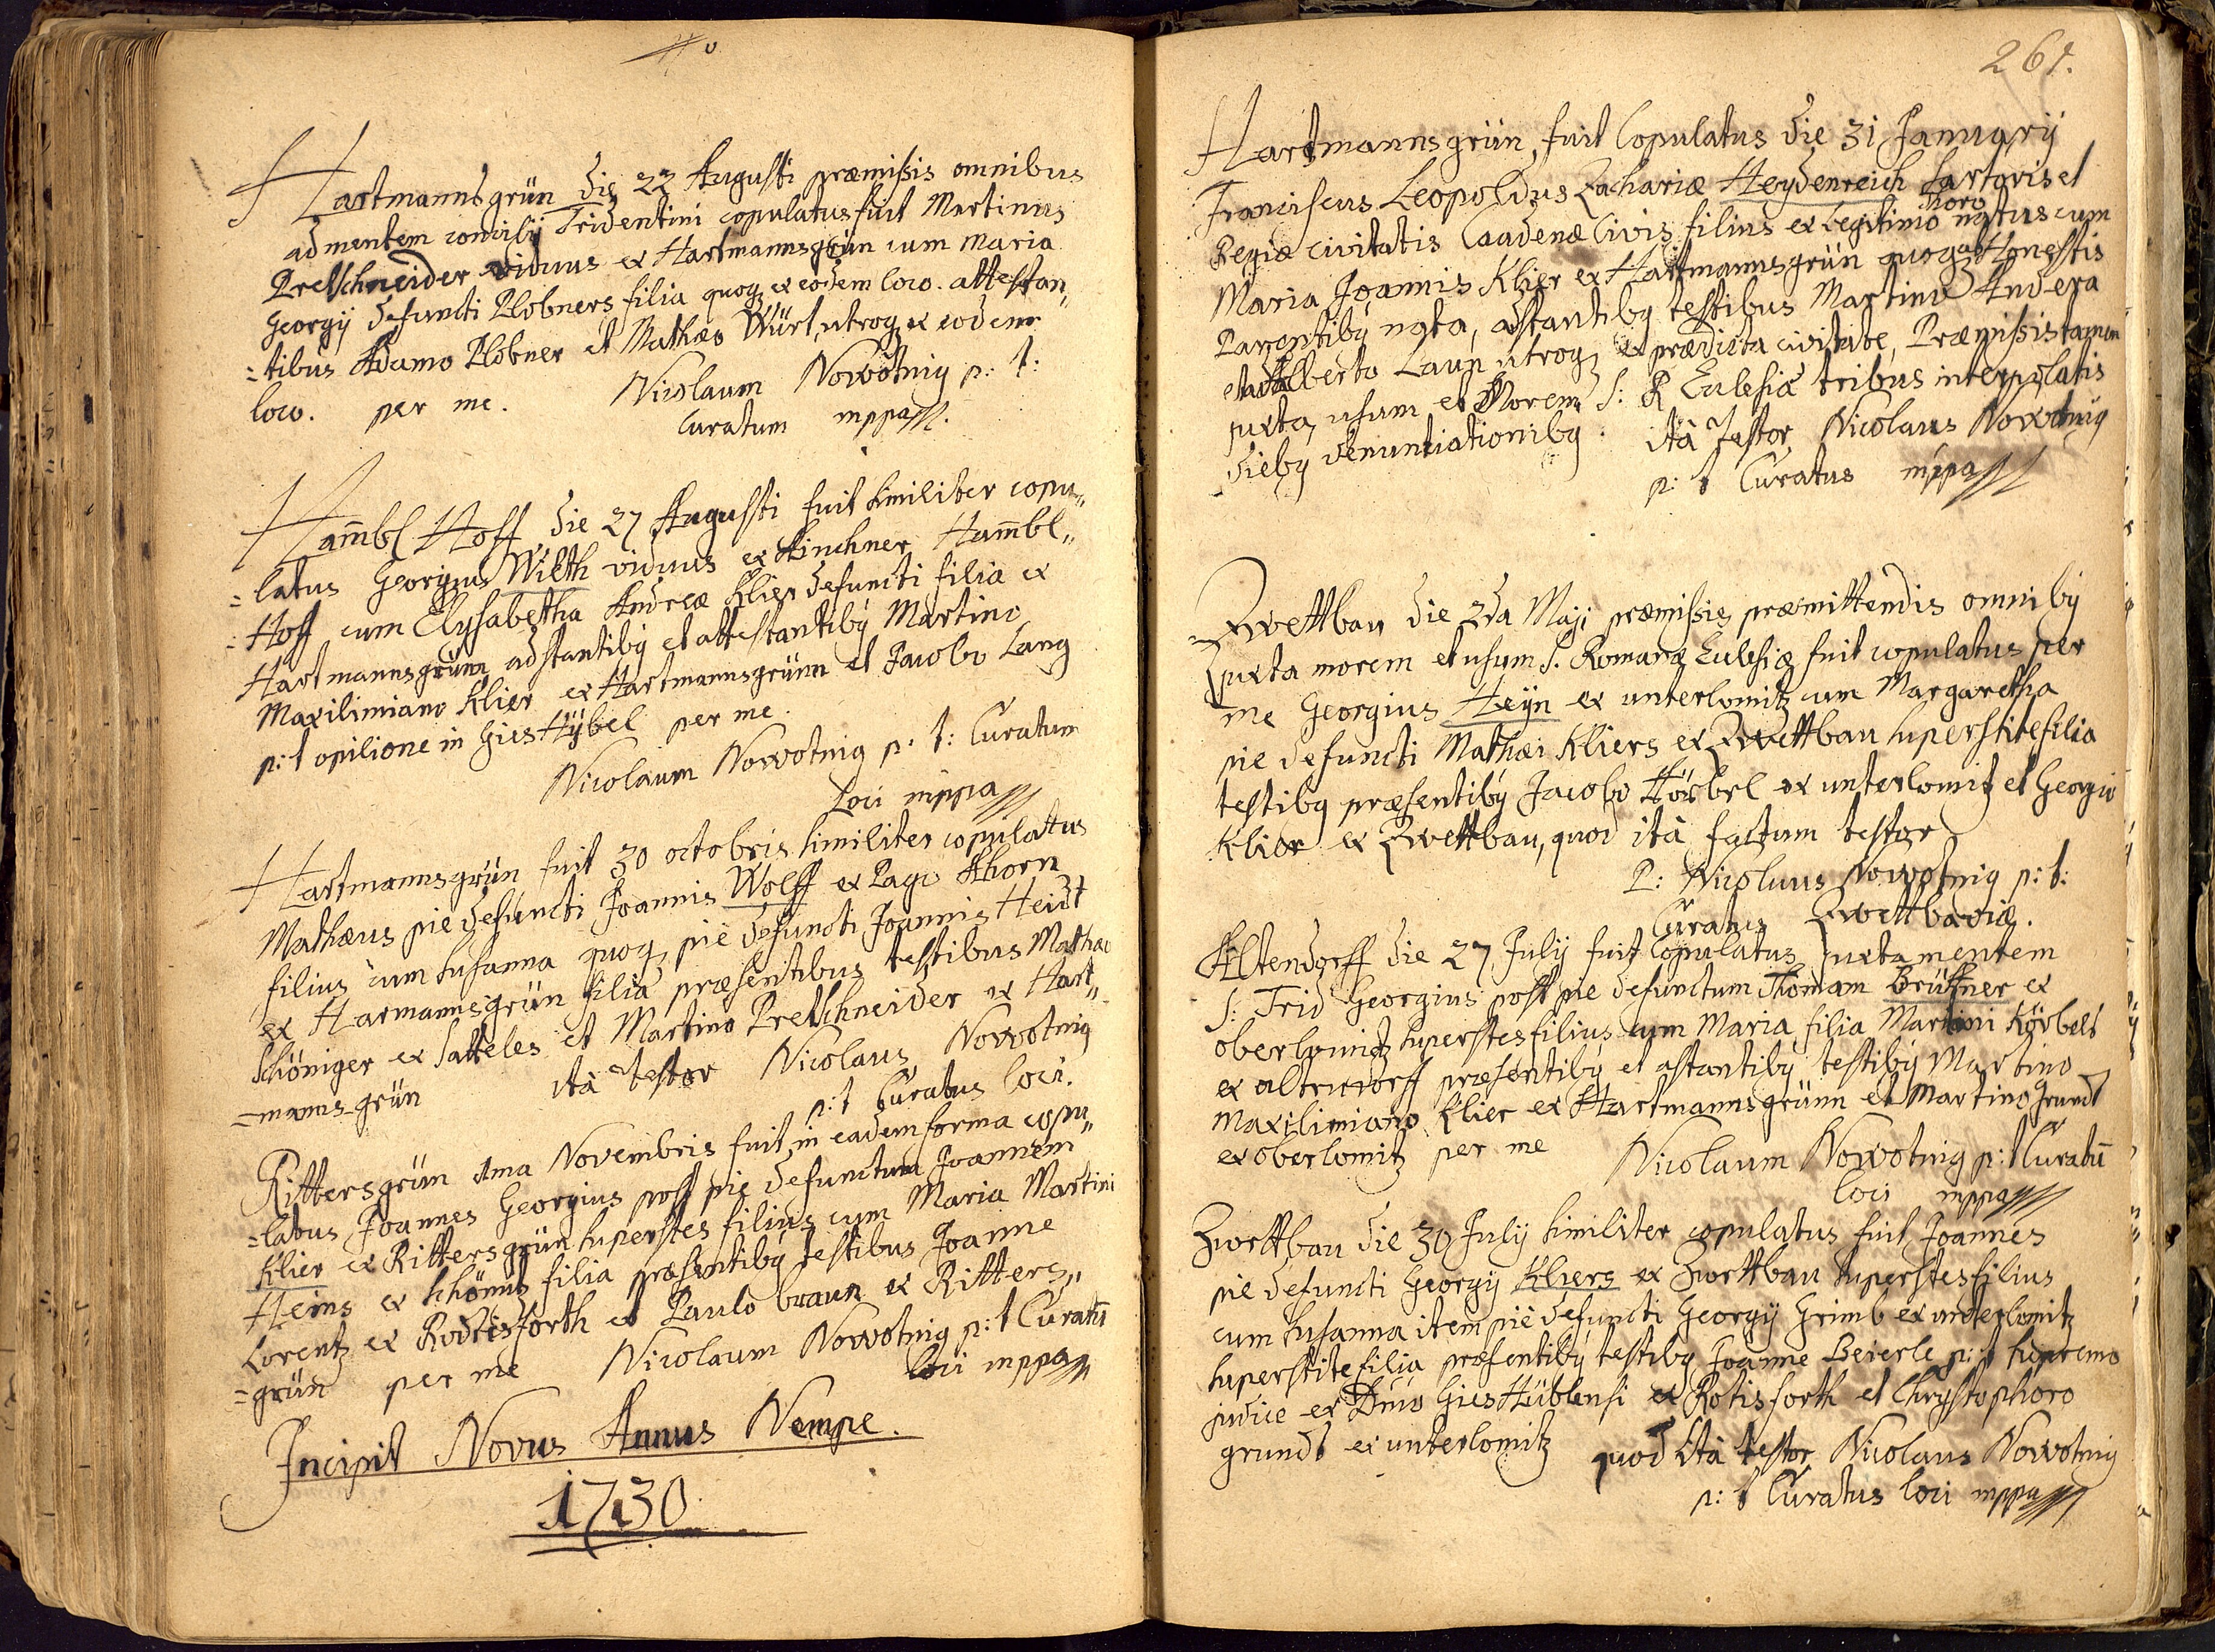 Hartmannsgrün die 22 Augusti præmissis omnibus
ad mentem concilij Tridentini copulatus fuit Martinus
Pretschneider viduus ex Hartmannsgrün cum Maria
Georgij defuncti Plobners filia quoq ex eodem loco. attestan„
=tibus Adamo Plobner et Mathæo Würt, utroq ex eodem
loco. per me. Nicolaum Nowotnig p: t:
Curatum mppa
Ham̄bl Hoff die 27 Augusti fuit similiter copu„
=latus Georgius Wilth viduus ex Kirchner Ham̄bl„
=Hoff cum Elysabetha Andreæ Klier defuncti filia ex
Hartmannsgrünn adstantibꝫ et attestantibꝫ Martino
Maxilimiano Klier ex Hartmannsgrünn et Jacobo Lang
p: t opilione in Gies Hÿbel per me.
Nicolaum Nowotnig p: t: Curatum
Loci mppa
Hartmannsgrün fuit 30 octobris similiter copulattus
Mathæus pie defuncti Joannis Wolff ex Pago Ahorn
filius cum Susanna quoq pie defuncti Joannis Heidt
ex Harmannsgrün filia præsentibus testibus Mathæo
Schöniger ex Satteles et Martino Pretschneider ex Hart„
=manns-grün ità testor Nicolaus Nowotnig
p: t Curatus loci.
Rittersgrün 1ma Novembris fuit in eadem forma copu„
=latus Joannes Georgius post pie defunctum Joannem
Klier ex Rittersgrün superstes filius cum Maria Martini
Heins ex Schönns filia præsentibꝫ testibus Joanne
Lorentz ex Rodtisforth et Paulo braun ex Ritters„
=grün per me Nicolaum Nowotnig p: t Curatū
loci mppa
Incipit Novus Annus Nempe.
1730
261.
Hartmannsgrün, fuit Copulatus die 31 Januarij
Franciscus Leopoldus Zachariæ Heydenreich Sartoris et
Regiæ civitatis Caadenæ Civis filius ex legitimo thoro natus cum
Maria Joannis Klier ex Hartmannsgrün quoq ab Honestis
Parentibꝫ nata, adstantibꝫ testibus Martino Andera
et Adalberto Laun utroq ex prædicta civitate, Præmissis tamen
juxta usum et Morem S: R Eclesiæ tribus interpolatis
diebꝫ denuntiationibꝫ. ità testor Nicolaus Nowotnig
p: t Curatus mppa
Zwettbau die 2da Maji præmissis præmittendis omnibꝫ
juxta morem et usum S. Romanæ Eclesiæ fuit copulatus per
me Georgius Heÿn ex unterlomitz cum Margaretha
pie defuncti Mathæi Kliers ex Zwettbau superstite filia
testibꝫ præsentibꝫ Jacobo Körbel ex unterlomitz et Georgio
Klier ex Zwettbau, quod ità factum testor
P: Nicolaus Nowotnig p: t:
Curatus Zwettbaviæ.
Altendorff die 27 July fuit Copulatus juxta mentem
S: Trid Georgius post pie defunctum Thomam Brükner ex
oberlomitz superstes filius cum Maria filia Martini Körbels
ex altendorff præsentibꝫ et astantibꝫ testibꝫ Martino
Maxilimiano Klier ex Hartmannsgrünn et Martino Grundt
ex oberlomitz per me Nicolaum Nowotnig p: t Curatū
loci mppa
Zwettbau die 30 July similiter copulatus fuit Joannes
pie defuncti Georgij Kliers ex Zwettbau superstes filius
cum Susanna item pie defuncti Georgij Grimb ex unterlomitz
superstite filia præsentibꝫ testibꝫ Joanne Beierle p: t supremo
judice ex Dnio Gies Hüblensi ex Rotisforth et Chrystophoro
grundt ex unterlomitz quod ità testor Nicolaus Nowotnig
p: t Curatus loci mppa